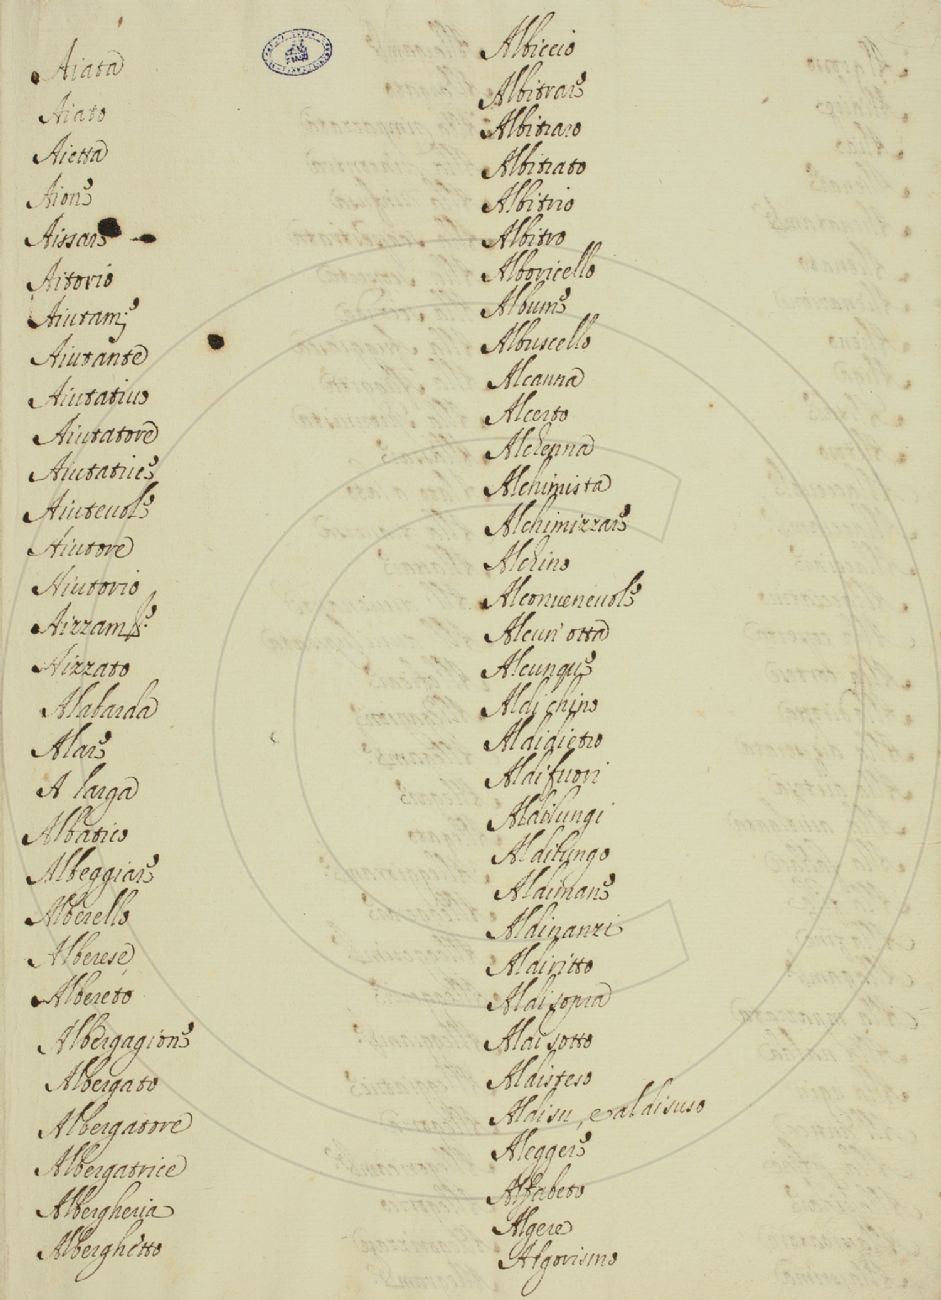 Aiata
Aiato
Aietta
Aione
Aissare
Aitorio
Aiutamᵒ
Aiutante
Aiutativo
Aiutatore
Aiutatrice
Aiutevole
Aiutore
Aiutorio
Aizzamᵒ
Aizzato
Alabarda
Alare
A larga
Albatico
Albeggiare
Alberello
Alberese
Albereto
Albergagione
Albergato
Albergatore
Albergatrice
Albergheria
Alberghetto
Albiccio
Albitrare
Albitraro
Albitrato
Albitrio
Albitro
Alboricello
Albume
Albuscello
Alcanna
Alcerto
Alchenna
Alchimista
Alchimizzare
Alchino
Alconvenevole
Alcun'otta
Alcunque
Aldichino
Aldidietro
Aldifuori
Aldilungi
Aldilungo
Aldimane
Aldinanzi
Aldiritto
Aldisopra
Aldisotto
Aldisteso
Aldisu, e aldisuso
Aleggere
Alfabeto
Algere
Algorismo